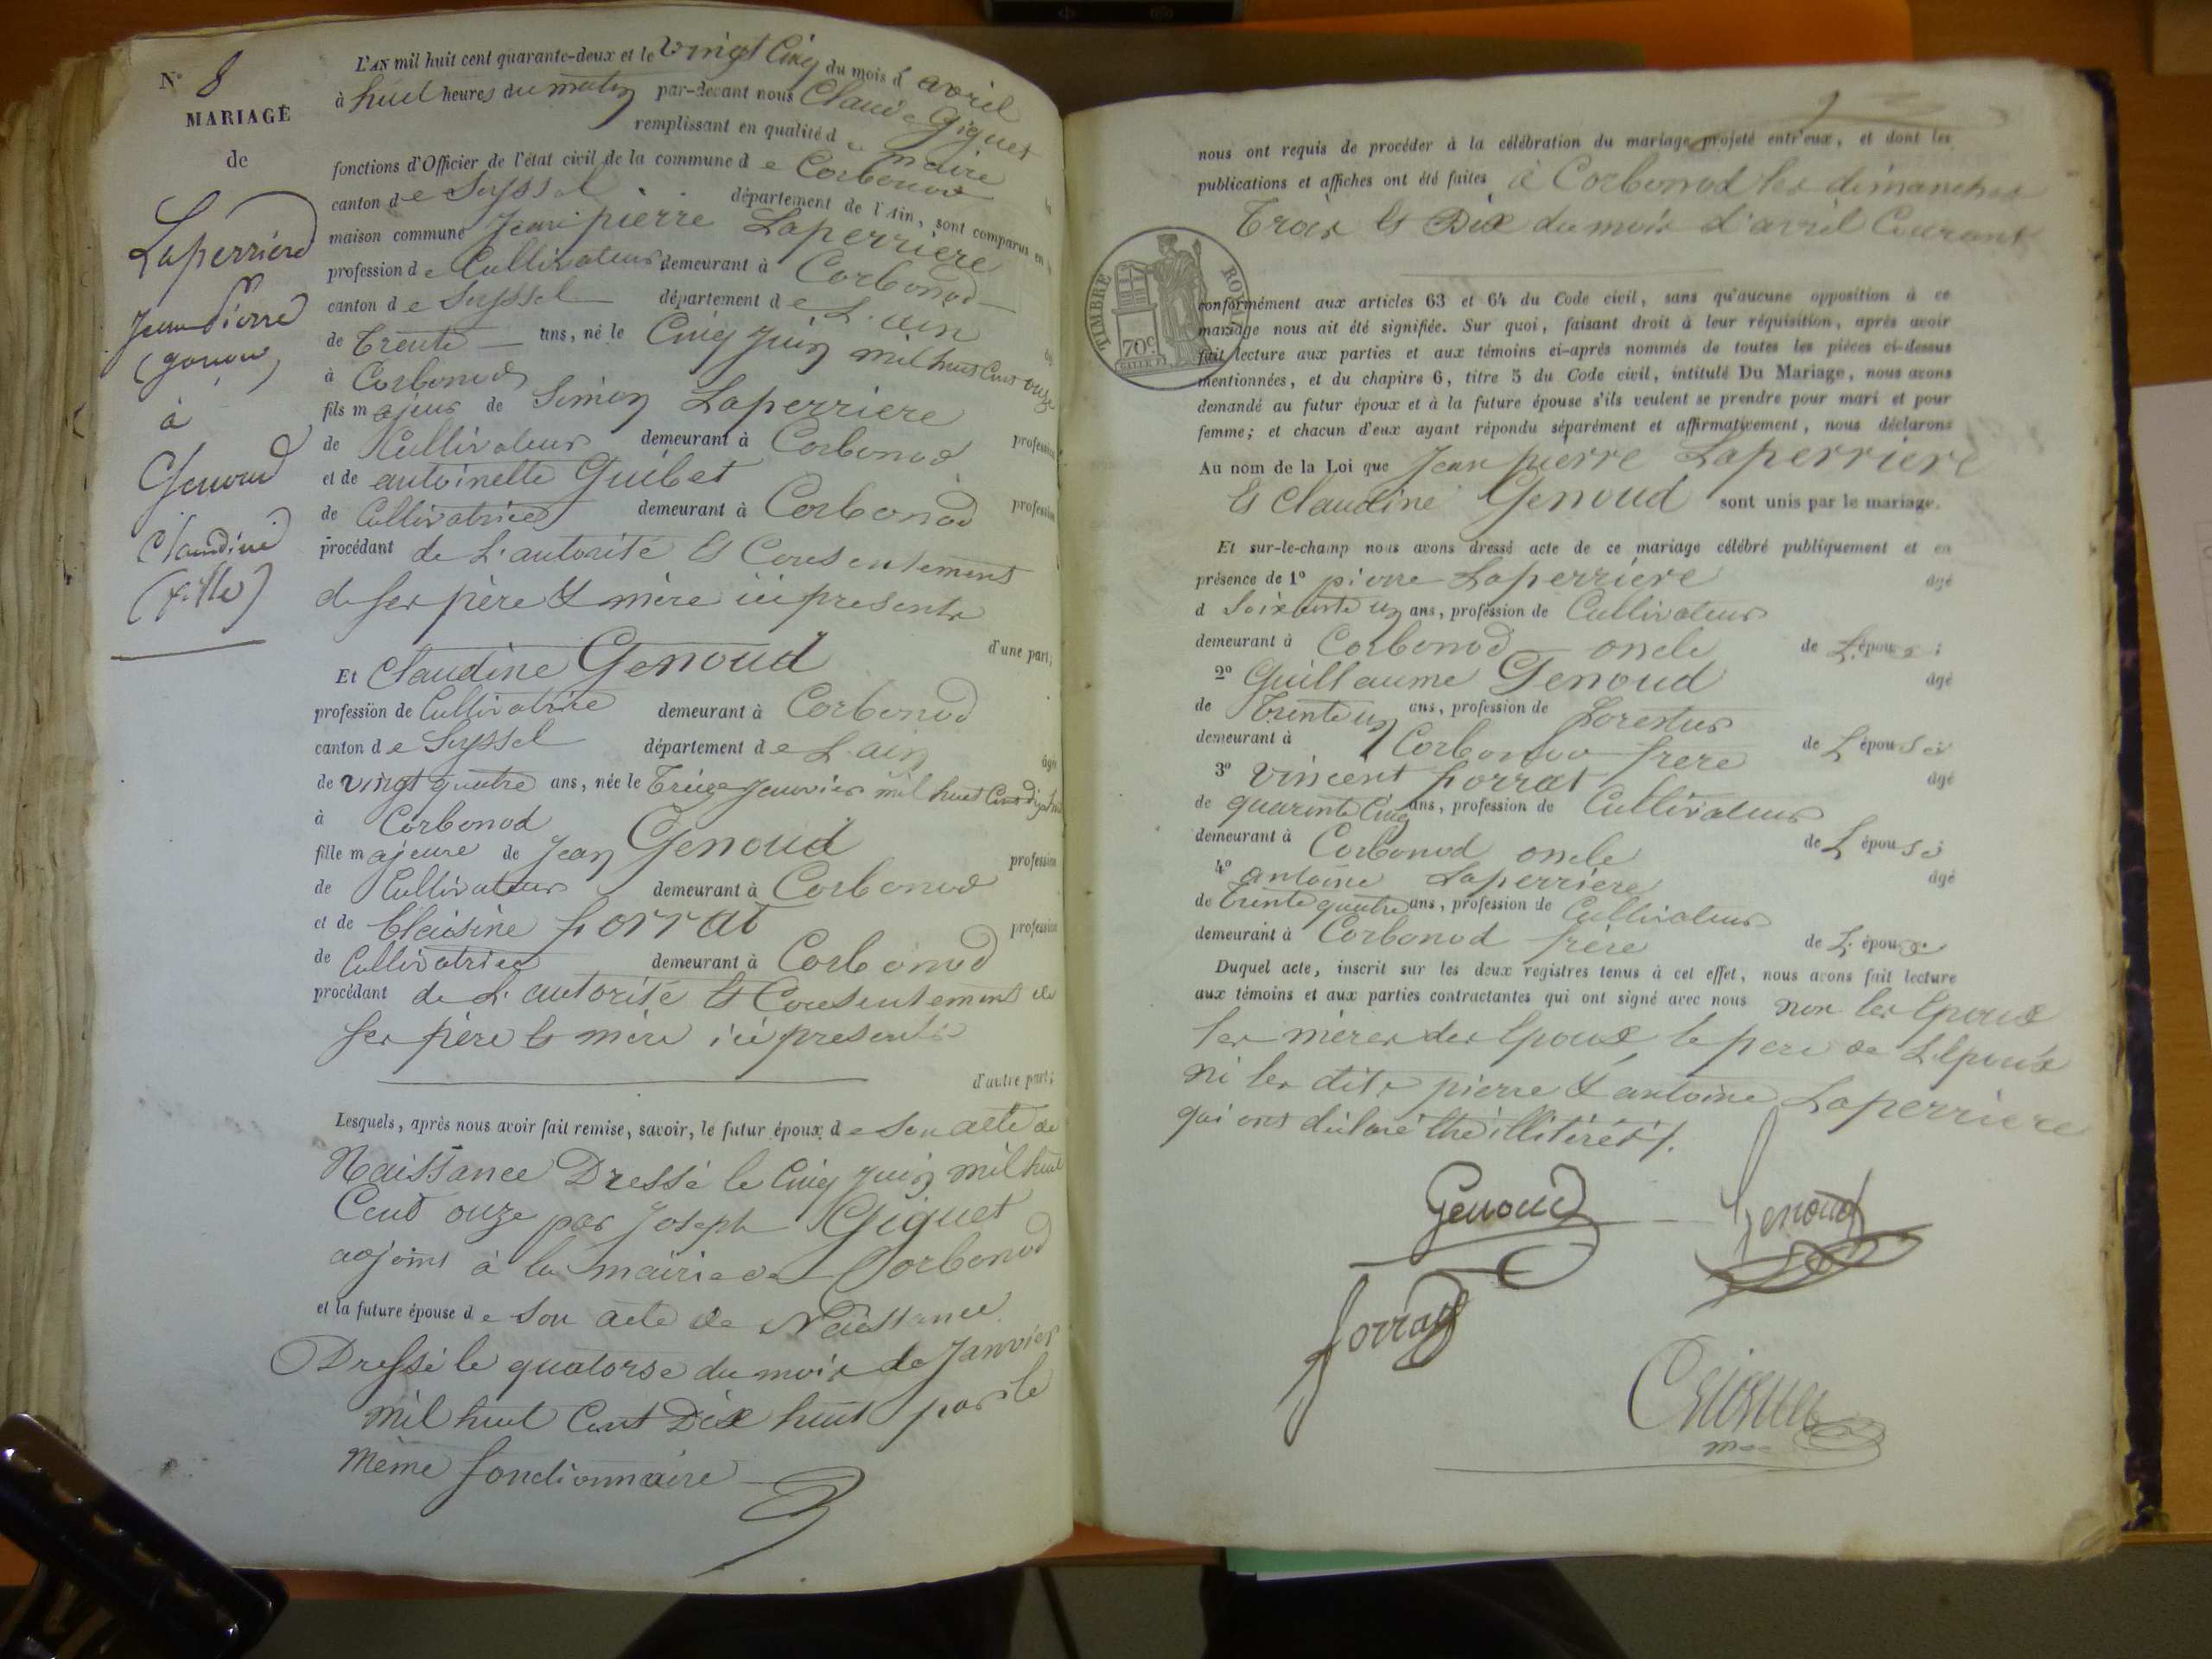 N° 8
MARIAGE
de
Laperriere
Jean Pierre
(garçon)
à
Genoud
Claudine
(fille)
L'AN mil huit cent quarante-deux et le vingt Cinq du mois d'avril
à huit heures du matin par-devant nous Claude Giguet
remplissant en qualité de maire
fonctions d'Officier de l'état civil de la commune de Corbonod
canton de Seyssel département de l'Ain, sont comparus en la
maison commune Jean pierre Laperriere
profession de Cultivateur demeurant à Corbonod
canton de Seyssel département de L'ain
de Trente ans, né le Cinq Juin mil huit Cent onze
à Corbonod
fils majeur de Simon Laperriere profession
de Cultivateur demeurant à Corbonod
et de antoinette Guibet profession
de Cultivatrice demeurant à Corbonod
procédant de L'autorité et Consentement
de ses père & mère ici présents
d'une part;
Et Claudine Genoud
profession de Cultivatrice demeurant à Corbonod
canton de Seyssel département de L'ain âgée
de vingt quatre ans, née le Treize Janvier mil huit Cent dix huit
à Corbonod
fille majeure de Jean Genoud profession
de Cultivateur demeurant à Corbonod
et de Claisine forrat profession
de Cultivatrice demeurant à Corbonod
procédant de L'autorité et Consentement de
ses père et mère ici présents
d'autre part;
Lesquels, après nous avoir fait remise, savoir, le futur époux de son acte de
Naissance Dressé le Cinq Juin mil huit
Cent onze par Joseph Giguet
adjoint à la mairie de Corbonod
et la future épouse de son acte de Naissance
Dressé le quatorse du mois de Janvier
mil huit Cent Dix huit par le
même fonctionnaire
nous ont requis de procéder à la célébration du mariage projeté entr'eux, et dont les
publications et affiches ont été faites à Corbonod les dimanches
Trois et Dix du mois d'avril Courant
TIMBRE ROYAL
70c
conformément aux articles 63 et 64 du Code civil, sans qu'aucune opposition à ce
mariage nous ait été signifiée. Sur quoi, faisant droit à leur réquisition, après avoir
fait lecture aux parties et aux témoins ci-après nommés de toutes les pièces ci-dessus
mentionnées, et du chapitre 6, titre 5 du Code civil, intitulé Du Mariage, nous avons
demandé au futur époux et à la future épouse s'ils veulent se prendre pour mari et pour
femme; et chacun d'eux ayant répondu séparément et affirmativement, nous déclarons
Au nom de la Loi que Jean pierre Laperriere
et Claudine Genoud sont unis par le mariage.
Et sur-le-champ nous avons dressé acte de ce mariage célébré publiquement et en
présence de 1° pierre Laperriere âgé
d Soixante un ans, profession de Cultivateur
demeurant à Corbonod oncle de L'époux;
2° Guillaume Genoud âgé
de Trente un ans, profession de
demeurant à Corbonod frere de L'épouse
3° Vincent forrat âgé
de quarante Cinq ans, profession de Cultivateur
demeurant à Corbonod oncle de L'épouse
4° antoine Laperriere âgé
de Trente quatre ans, profession de Cultivateur
demeurant à Corbonod frère de L'époux
Duquel acte, inscrit sur les deux registres tenus à cet effet, nous avons fait lecture
aux témoins et aux parties contractantes qui ont signé avec nous non les Epoux
les mères des Epoux le pere de L'Epoux
ni les dits pierre & antoine Laperriere
qui ont déclaré être illitérés /.
Genoud Genoud
forrat
Giguet